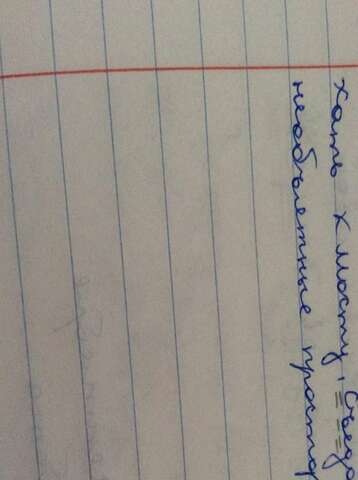 хать к мосту, съедо
необъятные простор